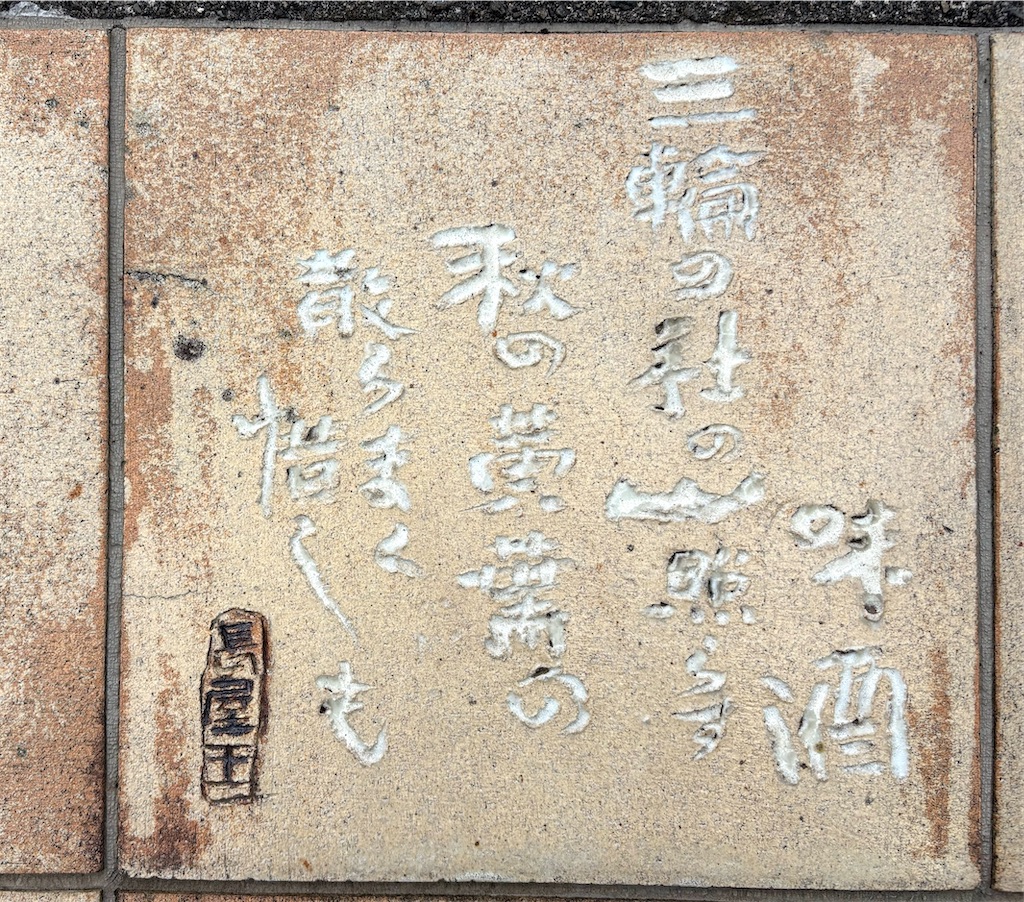 味酒
三輪の社の山照らす
秋の黄葉の
散らまく
惜しも
長屋王